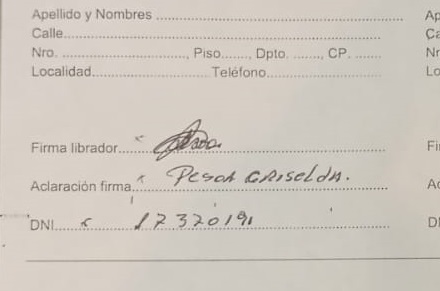 Apellido y Nombres ........................ Ap
Calle........................ Ca
Nro. ........................, Piso......., Dpto. ......., CP. ....... Nr
Localidad........................ Teléfono........................ Lo
Firma librador........................ Fi
Aclaración firma.... x PESOA GRISELDA. Ac
DNI..... x 17370191 D